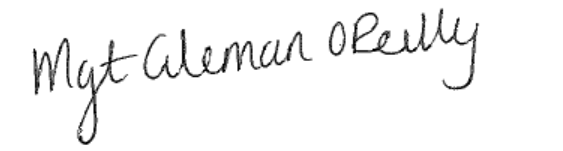 Mgt Coleman OReilly